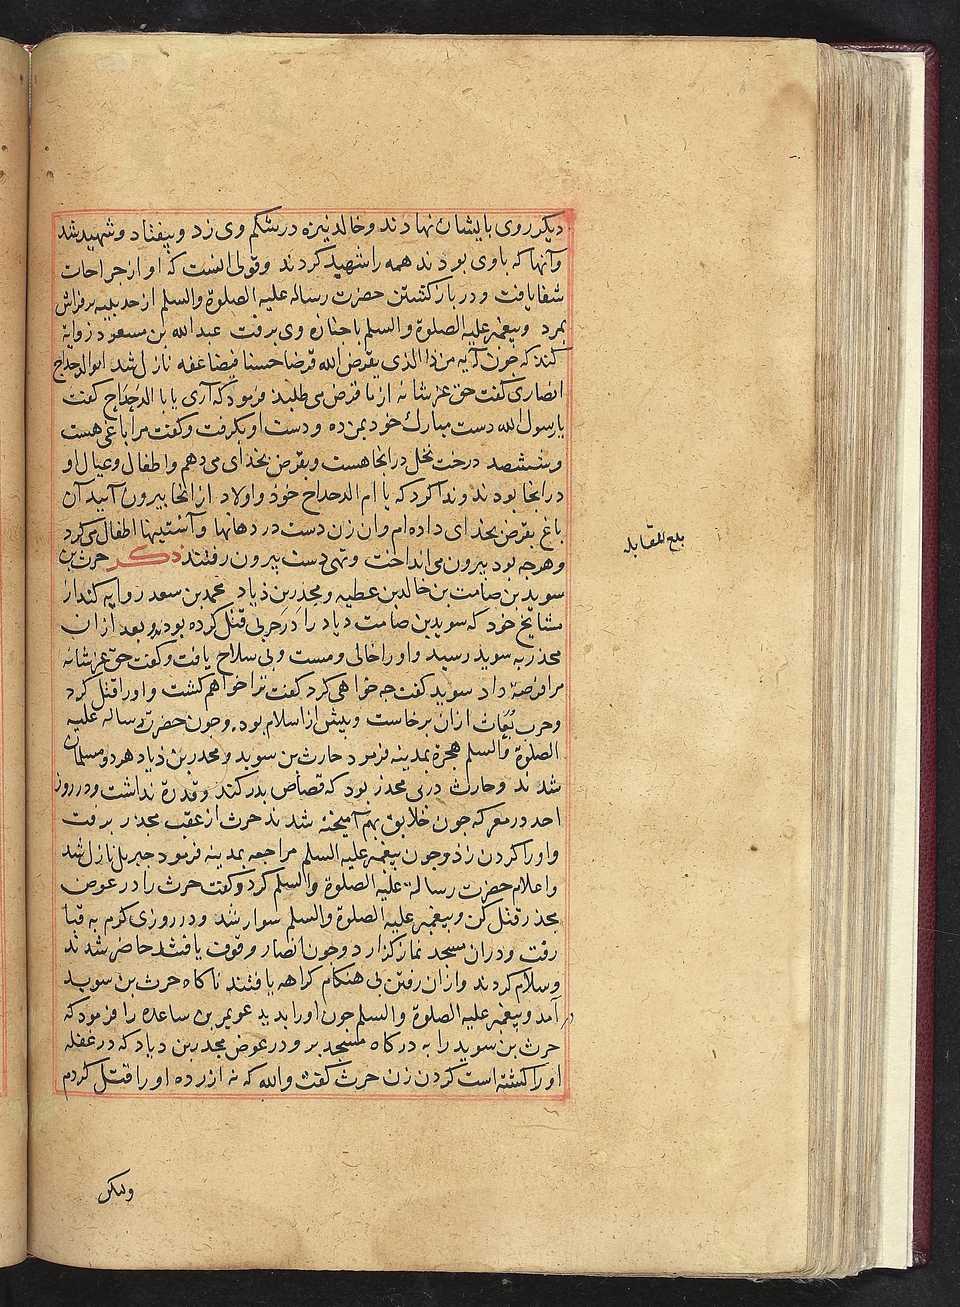 دیکر روی بایشان نهادند و خالد نیزه در شکم وی زد و بیفتاد و شهید شد
و آنها که با وی بودند همه را شهید کردند و قولی آنست که او از جراحات
شفا یافت و در باز کشتن حضرت رسالة علیه الصلوة والسلم از حدیبیه بر فراش
بمرد و پیغمبر علیه الصلوة والسلم با جنازه وی برفت عبد الله بن مسعود روایة
کند که چون آیه من ذا الذی یقرض الله قرضا حسنا فیضاعفه نازل شد ابو الدحداح
انصاری کفت حق عز شانه از ما قرض می طلبد فرمود که آری یا با الدحداح کفت
یا رسول الله دست مبارک خود بمن ده و دست او بکرفت و کفت مرا باغی هست
و ششصد درخت نخل در انجا هست و بقرض بخدای می دهم و اطفال و عیال او
در انجا بودند و ندا کرد که یا ام الدحداح خود و اولاد از انجا بیرون آیید آن
باغ بقرض بخدای داده ام و ان زن دست در دهانها و آستینها اطفال می کرد
و هرچه بود بیرون می انداخت و تهی دست بیرون رفتند دکر حرث بن
سوید بن صامت بن خالد بن عطیه و مجذر بن ذیاد محمد بن سعد روایه کند از
مشایخ خود که سوید بن صامت دیاد را در حربی قتل کرده بود و بعد از ان
مجذر به سوید رسید و او را خالی و مست و بی سلاح یافت و کفت حق عز شانه
مرا فرصة داد سوید کفت چه خواهی کرد کفت ترا خواهم کشت و او را قتل کرد
و حرب بُعاث ازان برخاست و پیش از اسلام بود و چون حضرت رسالة علیه
الصلوة والسلم هجرة بمدینه فرمود حارث بن سوید و مجذر بن ذیاد هر دو مسلمان
شدند و حارث در پی مجذر بود که قصاص پدر کند و قدرة نداشت و در روز
احد در معرکه چون خلایق بهم آمیخته شدند حرث از عقب مجذر برفت
و او را کردن زد و چون پیغمبر علیه السلم مراجعه بمدینه فرمود جبریل نازل شد
و اعلام حضرت رسالة علیه الصلوة والسلم کرد و کفت حرث را در عوض
مجذر قتل کن و پیغمبر علیه الصلوة والسلم سوار شد و در روزی کرم به قبا
رفت و دران مسجد نماز کزارد و چون انصار وقوف یافتند حاضر شدند
و سلام کردند و ازان رفتن بی هنکام کراهه یافتند ناکاه حرث بن سوید
آمد و پیغمبر علیه الصلوة والسلم چون او را بدید عویمر بن ساعده را فرمود که
حرث بن سوید را به درکاه مسجد بر و در عوض مجذر بن دیاد که در غفله
او را کشته است کردن زن حرث کفت والله که نه از رده او را قتل کردم
ولیکن
بلغ المقابله